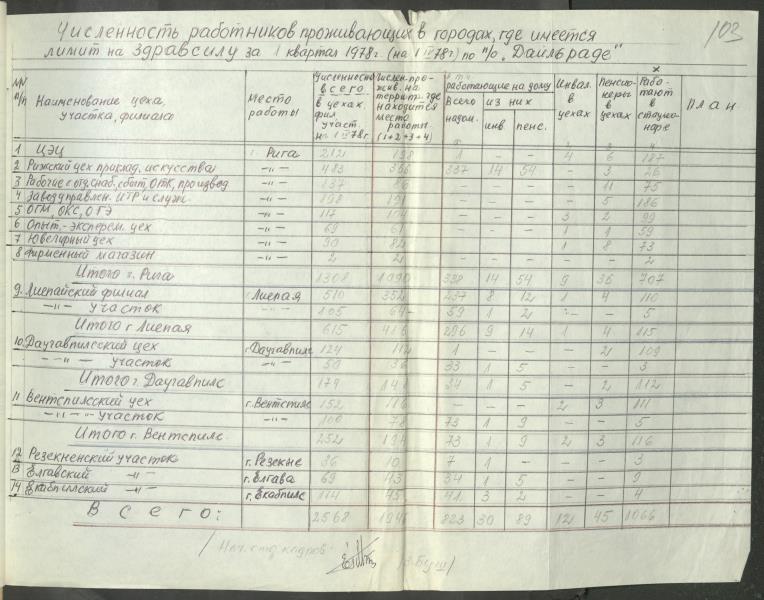 103
Численность работников проживающих в городах, где имеется
лимит на здравсилу за I квартал 1978г. (на 1 II 78г) по п/о "Дайльраде"
NN п/п | Наименование цеха, участка, филиала | Место работы | Численность всего в цехах, фил. участ. на 1 II 78г. | Числен. прожив. на террит. где находится место работы (1+2+3+4) | работающие на дому: всего надом. | из них инв | пенс. | Инвал. в цехах | Пенсионеры в цехах | Работают в стационаре | План
1 ЦЭЦ г. Рига 212 198 1 – – 4 6 187
2 Рижский цех приклад. искусства –"– 483 366 337 14 54 – 3 26
3 Рабочие с отд. снаб., сбыт, ОТК, производ –"– 137 86 – – – – 11 75
4 Заводоуправлен. ИТР и служ. –"– 198 191 – – – – 5 186
5 ОГМ, ОКС, ОГЭ –"– 117 104 – – – 3 2 99
6 Опыт.-эксперем. цех –"– 69 61 – – – 1 1 59
7 Ювелирный цех –"– 90 82 – – – 1 8 73
8 Фирменный магазин –"– 2 2 – – – – – 2
Итого г. Рига 1308 1090 338 14 54 9 36 707
9. Лиепайский филиал г. Лиепая 510 352 237 8 12 1 4 110
–"– участок 105 64 59 1 2 – – 5
Итого г Лиепая 615 416 296 9 14 1 4 115
10. Даугавпилсский цех г. Даугавпилс 124 112 1 – – – 2 109
–"– участок –"– 50 36 33 1 5 – – 3
Итого г. Даугавпилс 174 148 34 1 5 – 2 112
11 Вентспилсский цех г. Вентспилс 152 116 – – – 2 3 111
–"– участок –"– 100 78 73 1 9 – – 5
Итого г. Вентспилс. 252 194 73 1 9 2 3 116
12 Резекненский участок г. Резекне 36 10 7 1 – – – 3
13 Елгавский –"– г. Елгава 69 43 34 1 5 – – 9
14 Екабпилсский –"– г. Екабпилс 114 45 41 3 2 – – 4
Всего: 2568 1946 823 30 89 12 45 1066
/Нач. отд. кадров /В. Буш/